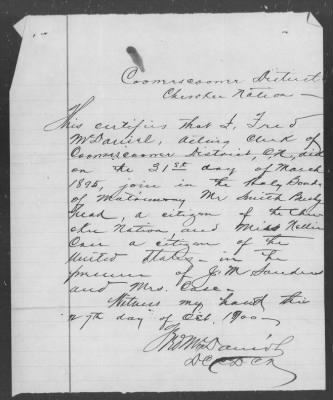 Coowescoowee District
Cherokee Nation —
This certifies that I, Fred
McDaniel, acting Clerk of
Coowescoowee District, C.N., did
on the 31st day of March
1895, join in the Holy Bonds
of Matrimony Mr Smith Bushy
head, a citizen of the Cher
okee Nation, and Miss Nellie
Case a citizen of the
United States — in the
presence of J. M. Sanders
and Mrs. Case —
Witness my hand this
27th day of Oct. 1900 —
Fred McDaniel
D C C D C N